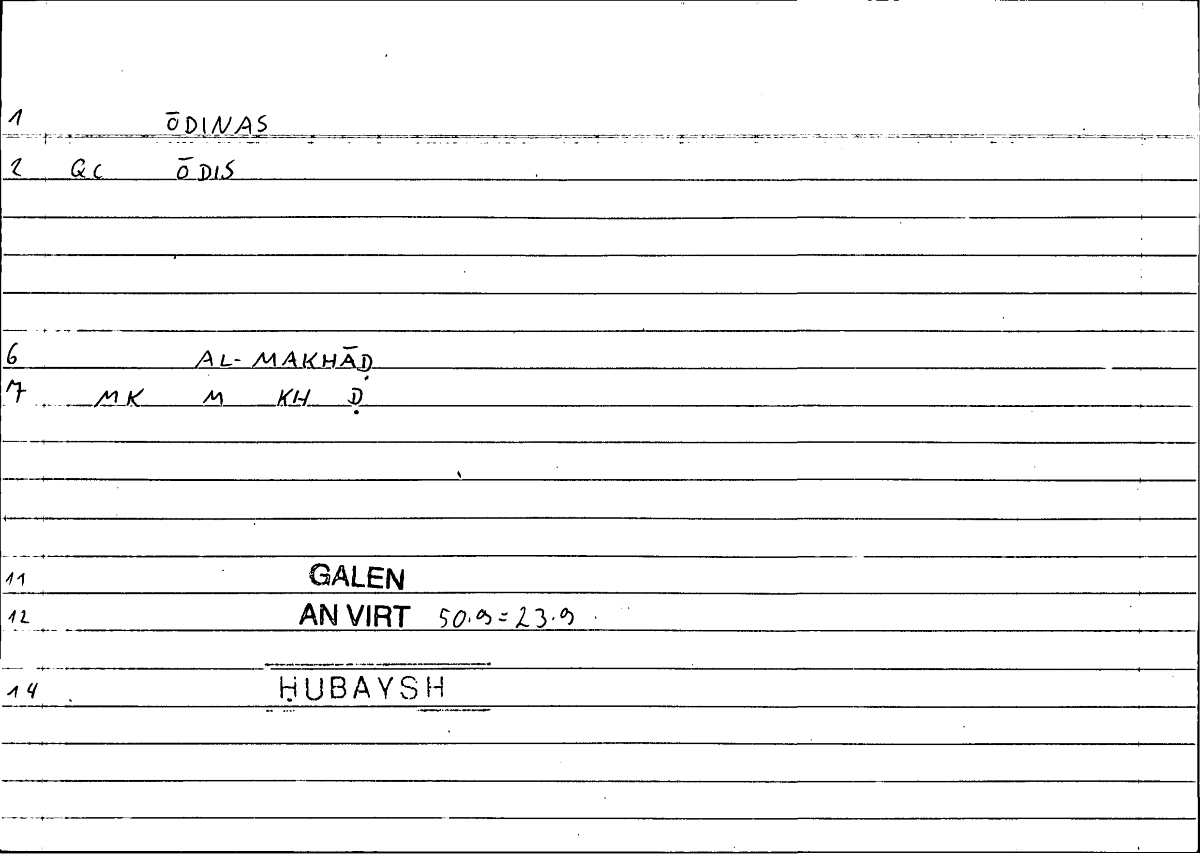 1 ŌDINAS
2 QC ŌDIS
6 AL-MAKHĀḌ
7 MK M KH Ḍ
11 GALEN
12 AN VIRT 50.9=23.9
14 ḤUBAYSH